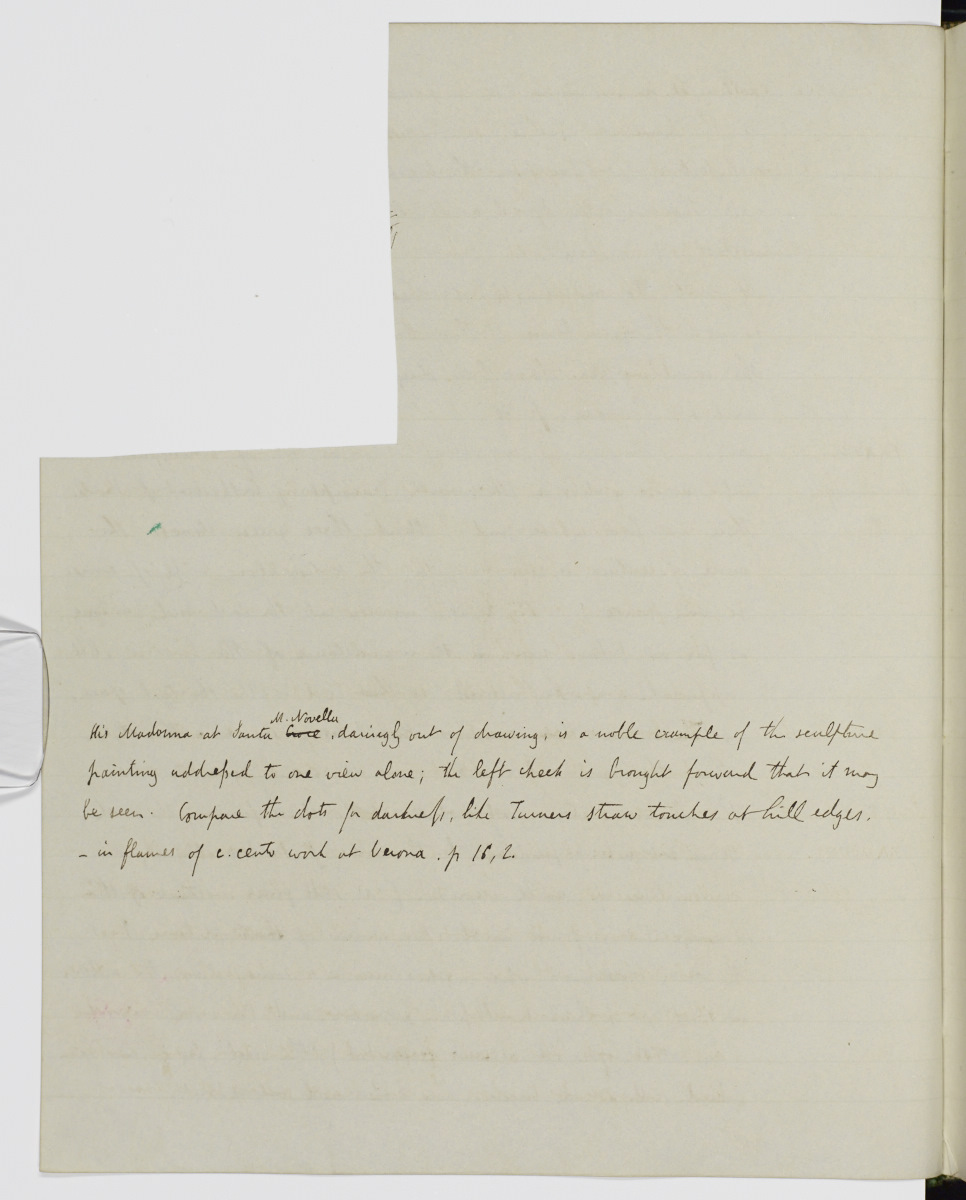 M. Novella
His Madonna at Santa Croce, daringly out of drawing, is a noble example of the sculpture
painting addressed to one view alone; the left cheek is brought forward that it may
be seen. Compare the dots for darkness, like Turners straw touches at hill edges.
– in flames of c. cento work at Verona. p 16, 2.